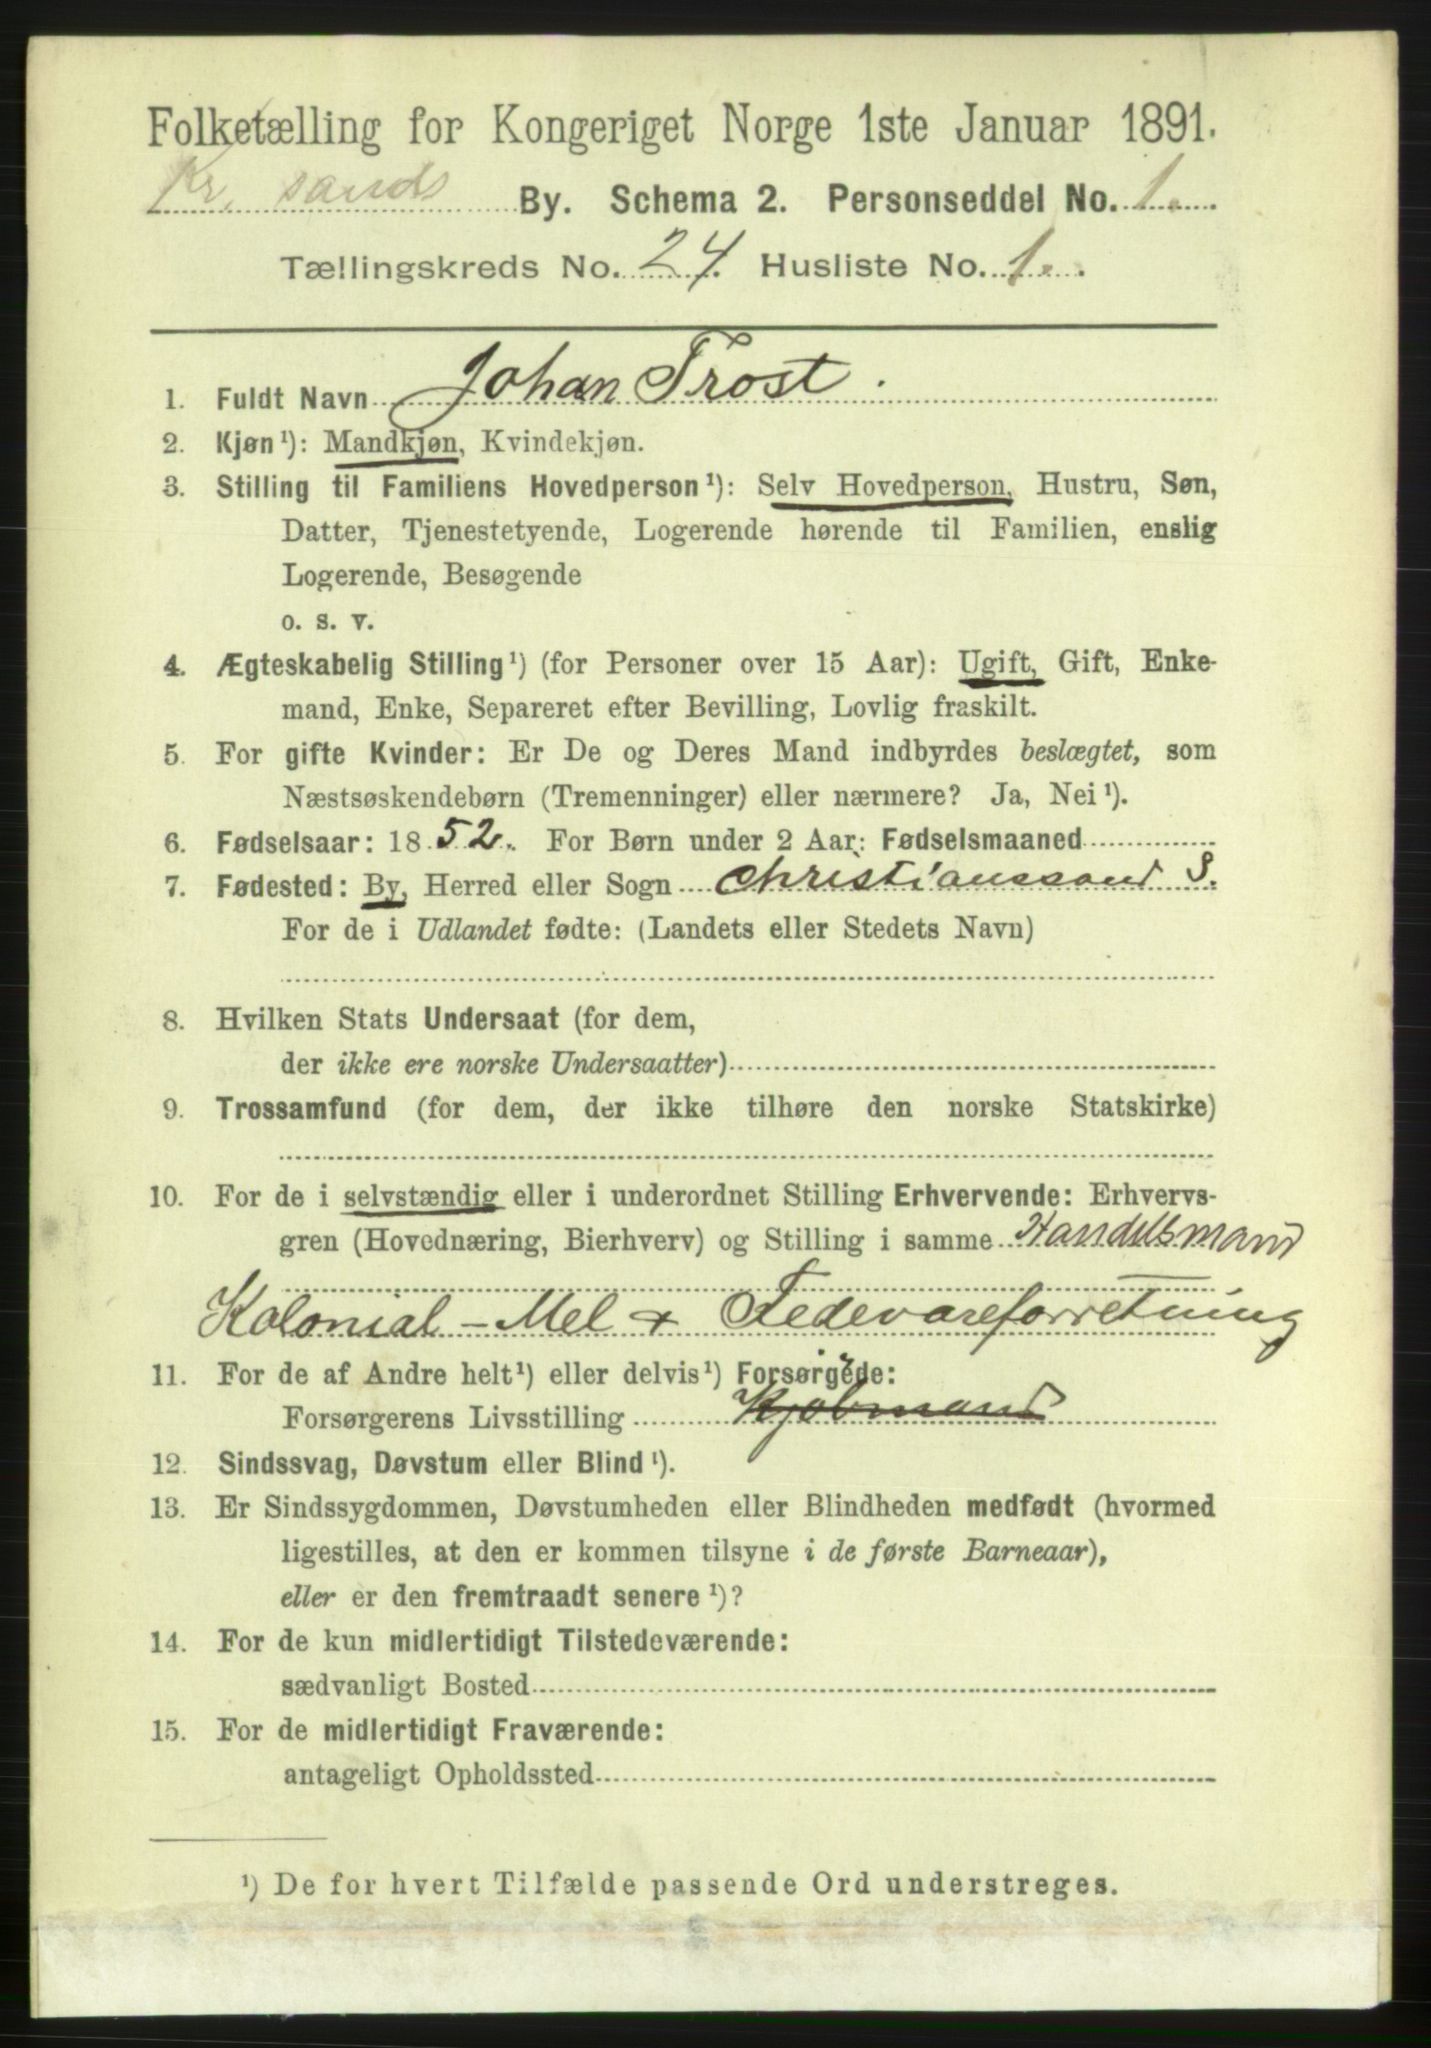 Folketælling for Kongeriget Norge 1ste Januar 1891.
Kr. sands By. Schema 2. Personseddel No. 1.
Tællingskreds No. 24. Husliste No. 1.
1. Fuldt Navn Johan Frost.
2. Kjøn¹): Mandkjøn, Kvindekjøn.
3. Stilling til Familiens Hovedperson¹): Selv Hovedperson, Hustru, Søn,
Datter, Tjenestetyende, Logerende hørende til Familien, enslig
Logerende, Besøgende
o. s. v.
4. Ægteskabelig Stilling¹) (for Personer over 15 Aar): Ugift, Gift, Enke-
mand, Enke, Separeret efter Bevilling, Lovlig fraskilt.
5. For gifte Kvinder: Er De og Deres Mand indbyrdes beslægtet, som
Næstsøskendebørn (Tremenninger) eller nærmere? Ja, Nei¹).
6. Fødselsaar: 1852. For Børn under 2 Aar: Fødselsmaaned
7. Fødested: By, Herred eller Sogn Christianssand S.
For de i Udlandet fødte: (Landets eller Stedets Navn)
8. Hvilken Stats Undersaat (for dem,
der ikke ere norske Undersaatter)
9. Trossamfund (for dem, der ikke tilhøre den norske Statskirke)
10. For de i selvstændig eller i underordnet Stilling Erhvervende: Erhvervs-
gren (Hovednæring, Bierhverv) og Stilling i samme Handelsmand
Kolonial-Mel & Fedevareforretning
11. For de af Andre helt¹) eller delvis¹) Forsørgede:
Forsørgerens Livsstilling Kjøbmand
12. Sindssvag, Døvstum eller Blind¹).
13. Er Sindssygdommen, Døvstumheden eller Blindheden medfødt (hvormed
ligestilles, at den er kommen tilsyne i de første Barneaar),
eller er den fremtraadt senere¹)?
14. For de kun midlertidigt Tilstedeværende:
sædvanligt Bosted
15. For de midlertidigt Fraværende:
antageligt Opholdssted
¹) De for hvert Tilfælde passende Ord understreges.